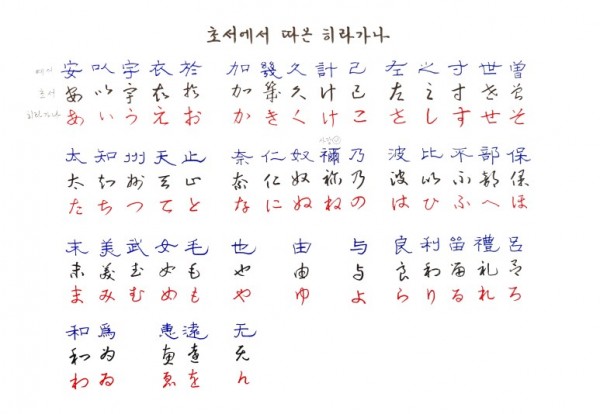 초서에서 따온 히라가나
예서 安 以 宇 衣 於 加 幾 久 計 己 左 之 寸 世 曾
초서 安 以 宇 衣 於 加 幾 久 计 己 左 之 寸 世 曽
히라가나 あ い う え お か き く け こ さ し す せ そ
太 知 州 天 止 奈 仁 奴 禰 乃 波 比 不 部 保
太 知 州 天 止 奈 仁 奴 祢 乃 波 比 不 部 保
た ち つ て と な に ぬ ね の は ひ ふ へ ほ
末 美 武 女 毛 也 由 与 良 利 留 禮 呂
末 美 武 女 毛 也 由 与 良 利 留 礼 呂
ま み む め も や ゆ よ ら り る れ ろ
和 爲 恵 遠 无
和 为 恵 遠 无
わ ゐ ゑ を ん